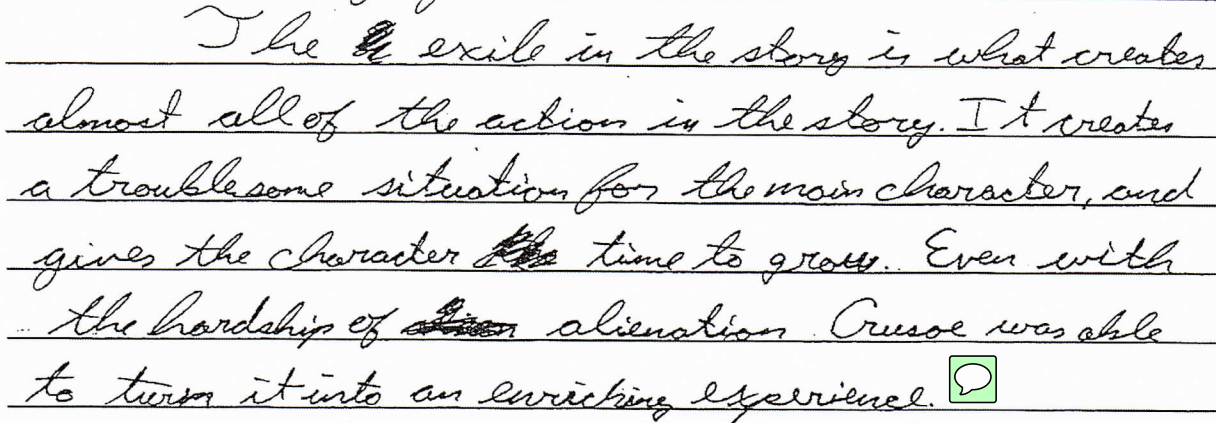 The exile in the story is what creates
almost all of the action in the story. It creates
a troublesome situation for the main character, and
gives the character time to grow. Even with
the hardship of alienation Crusoe was able
to turn it into an enriching experience.